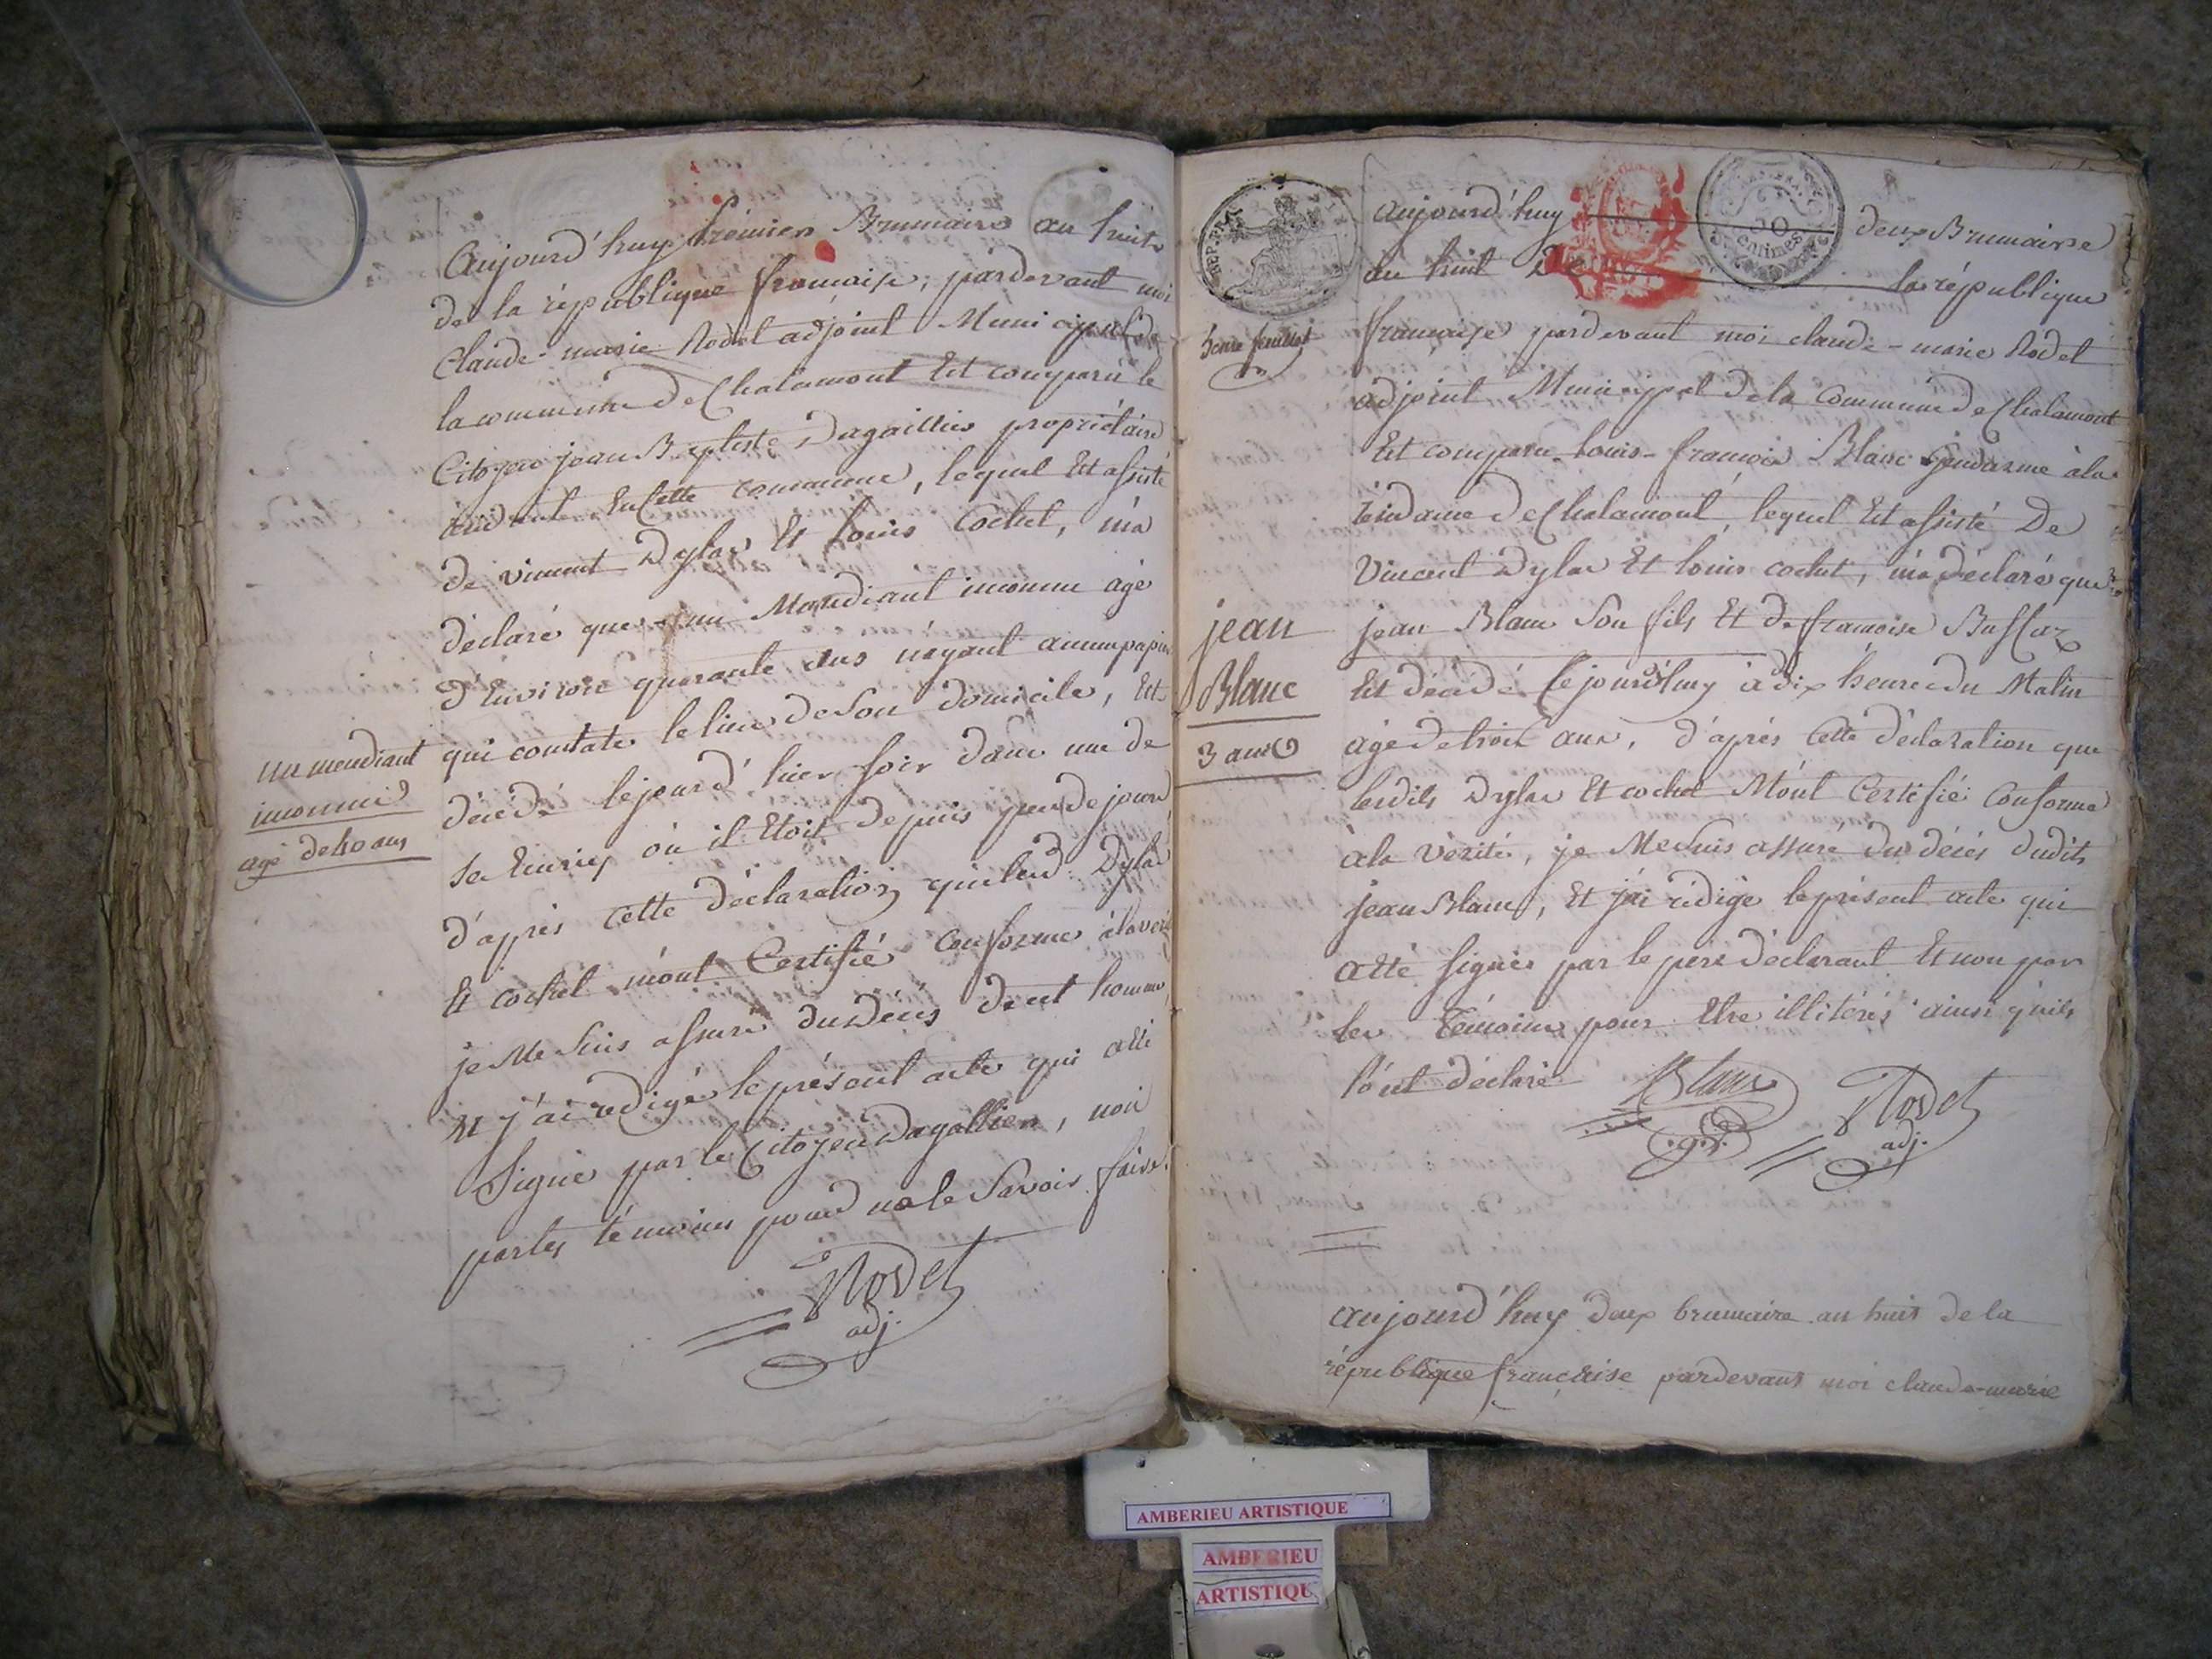 Aujourd'huy premier Brumaire an huit
de la république francaise, pardevant moi
Claude-marie Rodet adjoint Municipal de
la commune de Chalamont Est comparu le
Citoyen jean Baptiste Dagaillier propriétaire
résidant En Cette commune, lequel Est assisté
de vincent Dylas Et louis Cochet, m'a
déclaré que un Mendiant inconnu agé
d'Environ quarante ans n'ayant aucun papier
qui constate le lieu de Son domicile, Est
décédé lejourd'hier soir dans une de
Ses Ecuries où il Etoit depuis peu de jours
d'après cette déclaration que lesd. Dylas
Et cochet m'ont Certifié Conforme à la vérité
je Me Suis assuré du Décès de cet homme,
Et j'ai redigé le présent acte qui a été
Signé par le Citoyen Dagallier, non
par les témoins pour ne le Savoir faire.
Rodet
adj.
un mendiant
inconnu
agé de 40 ans
REP. FRA.
50
centimes
aujourd'huy deux Brumaire
an huit De la république
francaise pardevant moi claude-marie Rodet
adjoint Municipal de la Commune de Chalamont
Est comparu louis-francois Blanc Gendarme à la
résidance de Chalamont, lequel Est assisté De
Vincent Dylas Et louis cochet, m'a déclaré que
jean Blanc Son fils Et de francoise
Est décédé Cejourd'huy à dix heures du Matin
agé de trois ans, d'après Cette déclaration que
lesdits Dylas Et cochet M'ont Certifié Conforme
à la vérité, je Me Suis assuré du décès dudit
jean Blanc, Et j'ai rédigé le présent acte qui
a été signés par le père déclarant Et non par
les Témoins pour Etre illitérés ainsi qu'ils
l'ont déclaré
Blanc
Rodet
adj.
feuillet
jean
Blanc
3 ans
aujourd'huy deux brumaire an huit de la
république française pardevant moi claude-marie
AMBERIEU ARTISTIQUE
AMBERIEU
ARTISTIQU